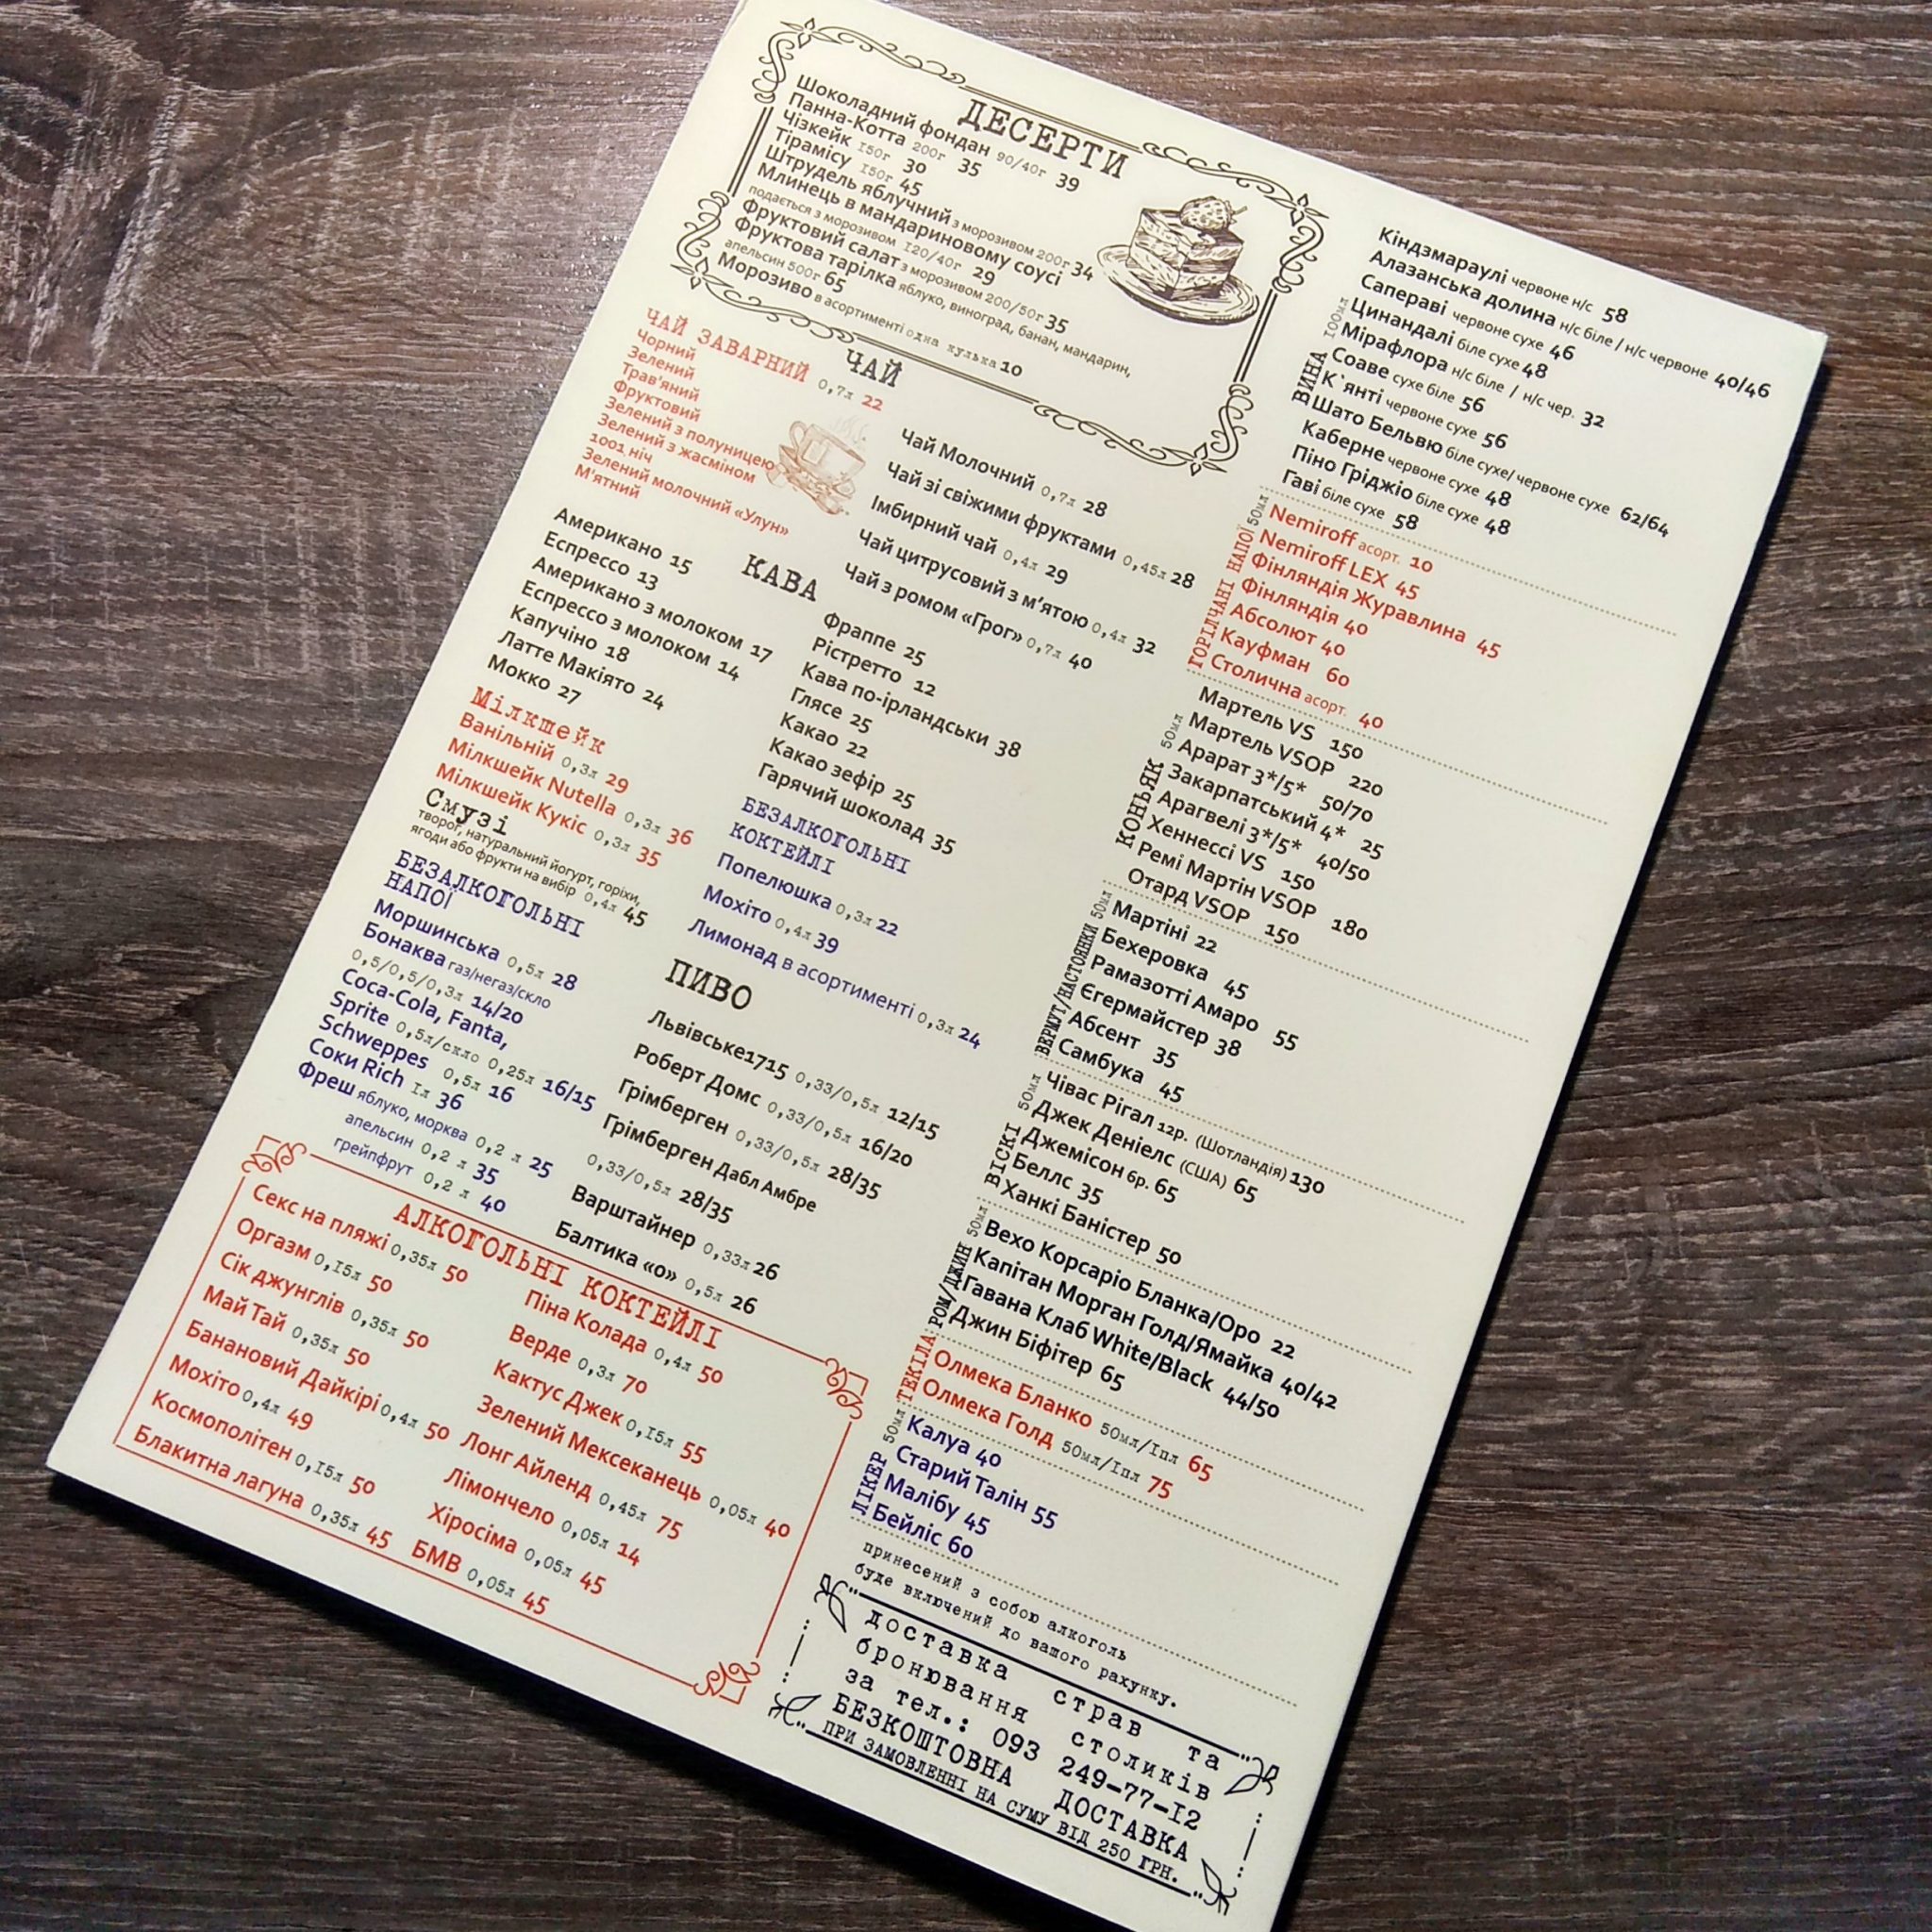 ДЕСЕРТИ
Шоколадний фондан 90/40г 39
Панна-Котта 200г 35
Чізкейк 150г 30
Тірамісу 150г 45
Штрудель яблучний з морозивом 200г 34
Млинець в мандариновому соусі
подається з морозивом 120/40г 29
Фруктовий салат з морозивом 200/50г 35
Фруктова тарілка яблуко, виноград, банан, мандарин,
апельсин 500г 65
Морозиво в асортименті одна кулька 10
ЧАЙ
ЧАЙ ЗАВАРНИЙ 0,7л 22
Чорний
Зелений
Трав'яний
Фруктовий
Зелений з полуницею
Зелений з жасміном
1001 ніч
Зелений молочний «Улун»
М'ятний
Чай Молочний 0,7л 28
Чай зі свіжими фруктами 0,45л 28
Імбирний чай 0,4л 29
Чай цитрусовий з м'ятою 0,4л 32
Чай з ромом «Грог» 0,7л 40
КАВА
Американо 15
Еспрессо 13
Американо з молоком 17
Еспрессо з молоком 14
Капучіно 18
Латте Макіято 24
Мокко 27
Фраппе 25
Рістретто 12
Кава по-ірландськи 38
Глясе 25
Какао 22
Какао зефір 25
Гарячий шоколад 35
Мілкшейк
Ванільній 0,3л 29
Мілкшейк Nutella 0,3л 36
Мілкшейк Кукіс 0,3л 35
Смузі
творог, натуральний йогурт, горіхи,
ягоди або фрукти на вибір 0,4л 45
БЕЗАЛКОГОЛЬНІ
НАПОЇ
Моршинська 0,5л 28
Бонаква газ/негаз/скло
0,5/0,5/0,3л 14/20
Coca-Cola, Fanta,
Sprite 0,5л/скло 0,25л 16/15
Schweppes 0,5л 16
Соки Rich 1л 36
Фреш яблуко, морква 0,2 л 25
апельсин 0,2 л 35
грейпфрут 0,2 л 40
БЕЗАЛКОГОЛЬНІ
КОКТЕЙЛІ
Попелюшка 0,3л 22
Мохіто 0,4л 39
Лимонад в асортименті 0,3л 24
ПИВО
Львівське1715 0,33/0,5л 12/15
Роберт Домс 0,33/0,5л 16/20
Грімберген 0,33/0,5л 28/35
Грімберген Дабл Амбре
0,33/0,5л 28/35
Варштайнер 0,33л 26
Балтика «0» 0,5л 26
АЛКОГОЛЬНІ КОКТЕЙЛІ
Секс на пляжі 0,35л 50
Оргазм 0,15л 50
Сік джунглів 0,35л 50
Май Тай 0,35л 50
Банановий Дайкірі 0,4л 50
Мохіто 0,4л 49
Космополітен 0,15л 50
Блакитна лагуна 0,35л 45
Піна Колада 0,4л 50
Верде 0,3л 70
Кактус Джек 0,15л 55
Зелений Мексеканець 0,05л 40
Лонг Айленд 0,45л 75
Лімончело 0,05л 14
Хіросіма 0,05л 45
БМВ 0,05л 45
ВИНА 100мл
Кіндзмараулі червоне н/с 58
Алазанська долина н/с біле / н/с червоне 40/46
Сапераві червоне сухе 46
Цинандалі біле сухе 48
Мірафлора н/с біле / н/с чер. 32
Соаве сухе біле 56
К`янті червоне сухе 56
Шато Бельвю біле сухе/ червоне сухе 62/64
Каберне червоне сухе 48
Піно Гріджіо біле сухе 48
Гаві біле сухе 58
ГОРІЛЧАНІ НАПОЇ 50мл
Nemiroff асорт. 10
Nemiroff LEX 45
Фінляндія Журавлина 45
Фінляндія 40
Абсолют 40
Кауфман 60
Столична асорт. 40
КОНЬЯК 50мл
Мартель VS 150
Мартель VSOP 220
Арарат 3*/5* 50/70
Закарпатський 4* 25
Арагвелі 3*/5* 40/50
Хеннессі VS 150
Ремі Мартін VSOP 180
Отард VSOP 150
ВЕРМУТ/НАСТОЯНКИ 50мл
Мартіні 22
Бехеровка 45
Рамазотті Амаро 55
Єгермайстер 38
Абсент 35
Самбука 45
ВІСКІ 50мл
Чівас Рігал 12р. (Шотландія) 130
Джек Деніелс (США) 65
Джемісон 6р. 65
Беллс 35
Ханкі Баністер 50
РОМ/ДЖИН 50мл
Вехо Корсаріо Бланка/Оро 22
Капітан Морган Голд/Ямайка 40/42
Гавана Клаб White/Black 44/50
Джин Біфітер 65
ТЕКІЛА
Олмека Бланко 50мл/1пл 65
Олмека Голд 50мл/1пл 75
ЛІКЕР 50мл
Калуа 40
Старий Талін 55
Малібу 45
Бейліс 60
принесений з собою алкоголь
буде включений до вашого рахунку.
доставка страв та
бронювання столиків
за тел.: 093 249-77-12
БЕЗКОШТОВНА ДОСТАВКА
ПРИ ЗАМОВЛЕННІ НА СУМУ ВІД 250 ГРН.